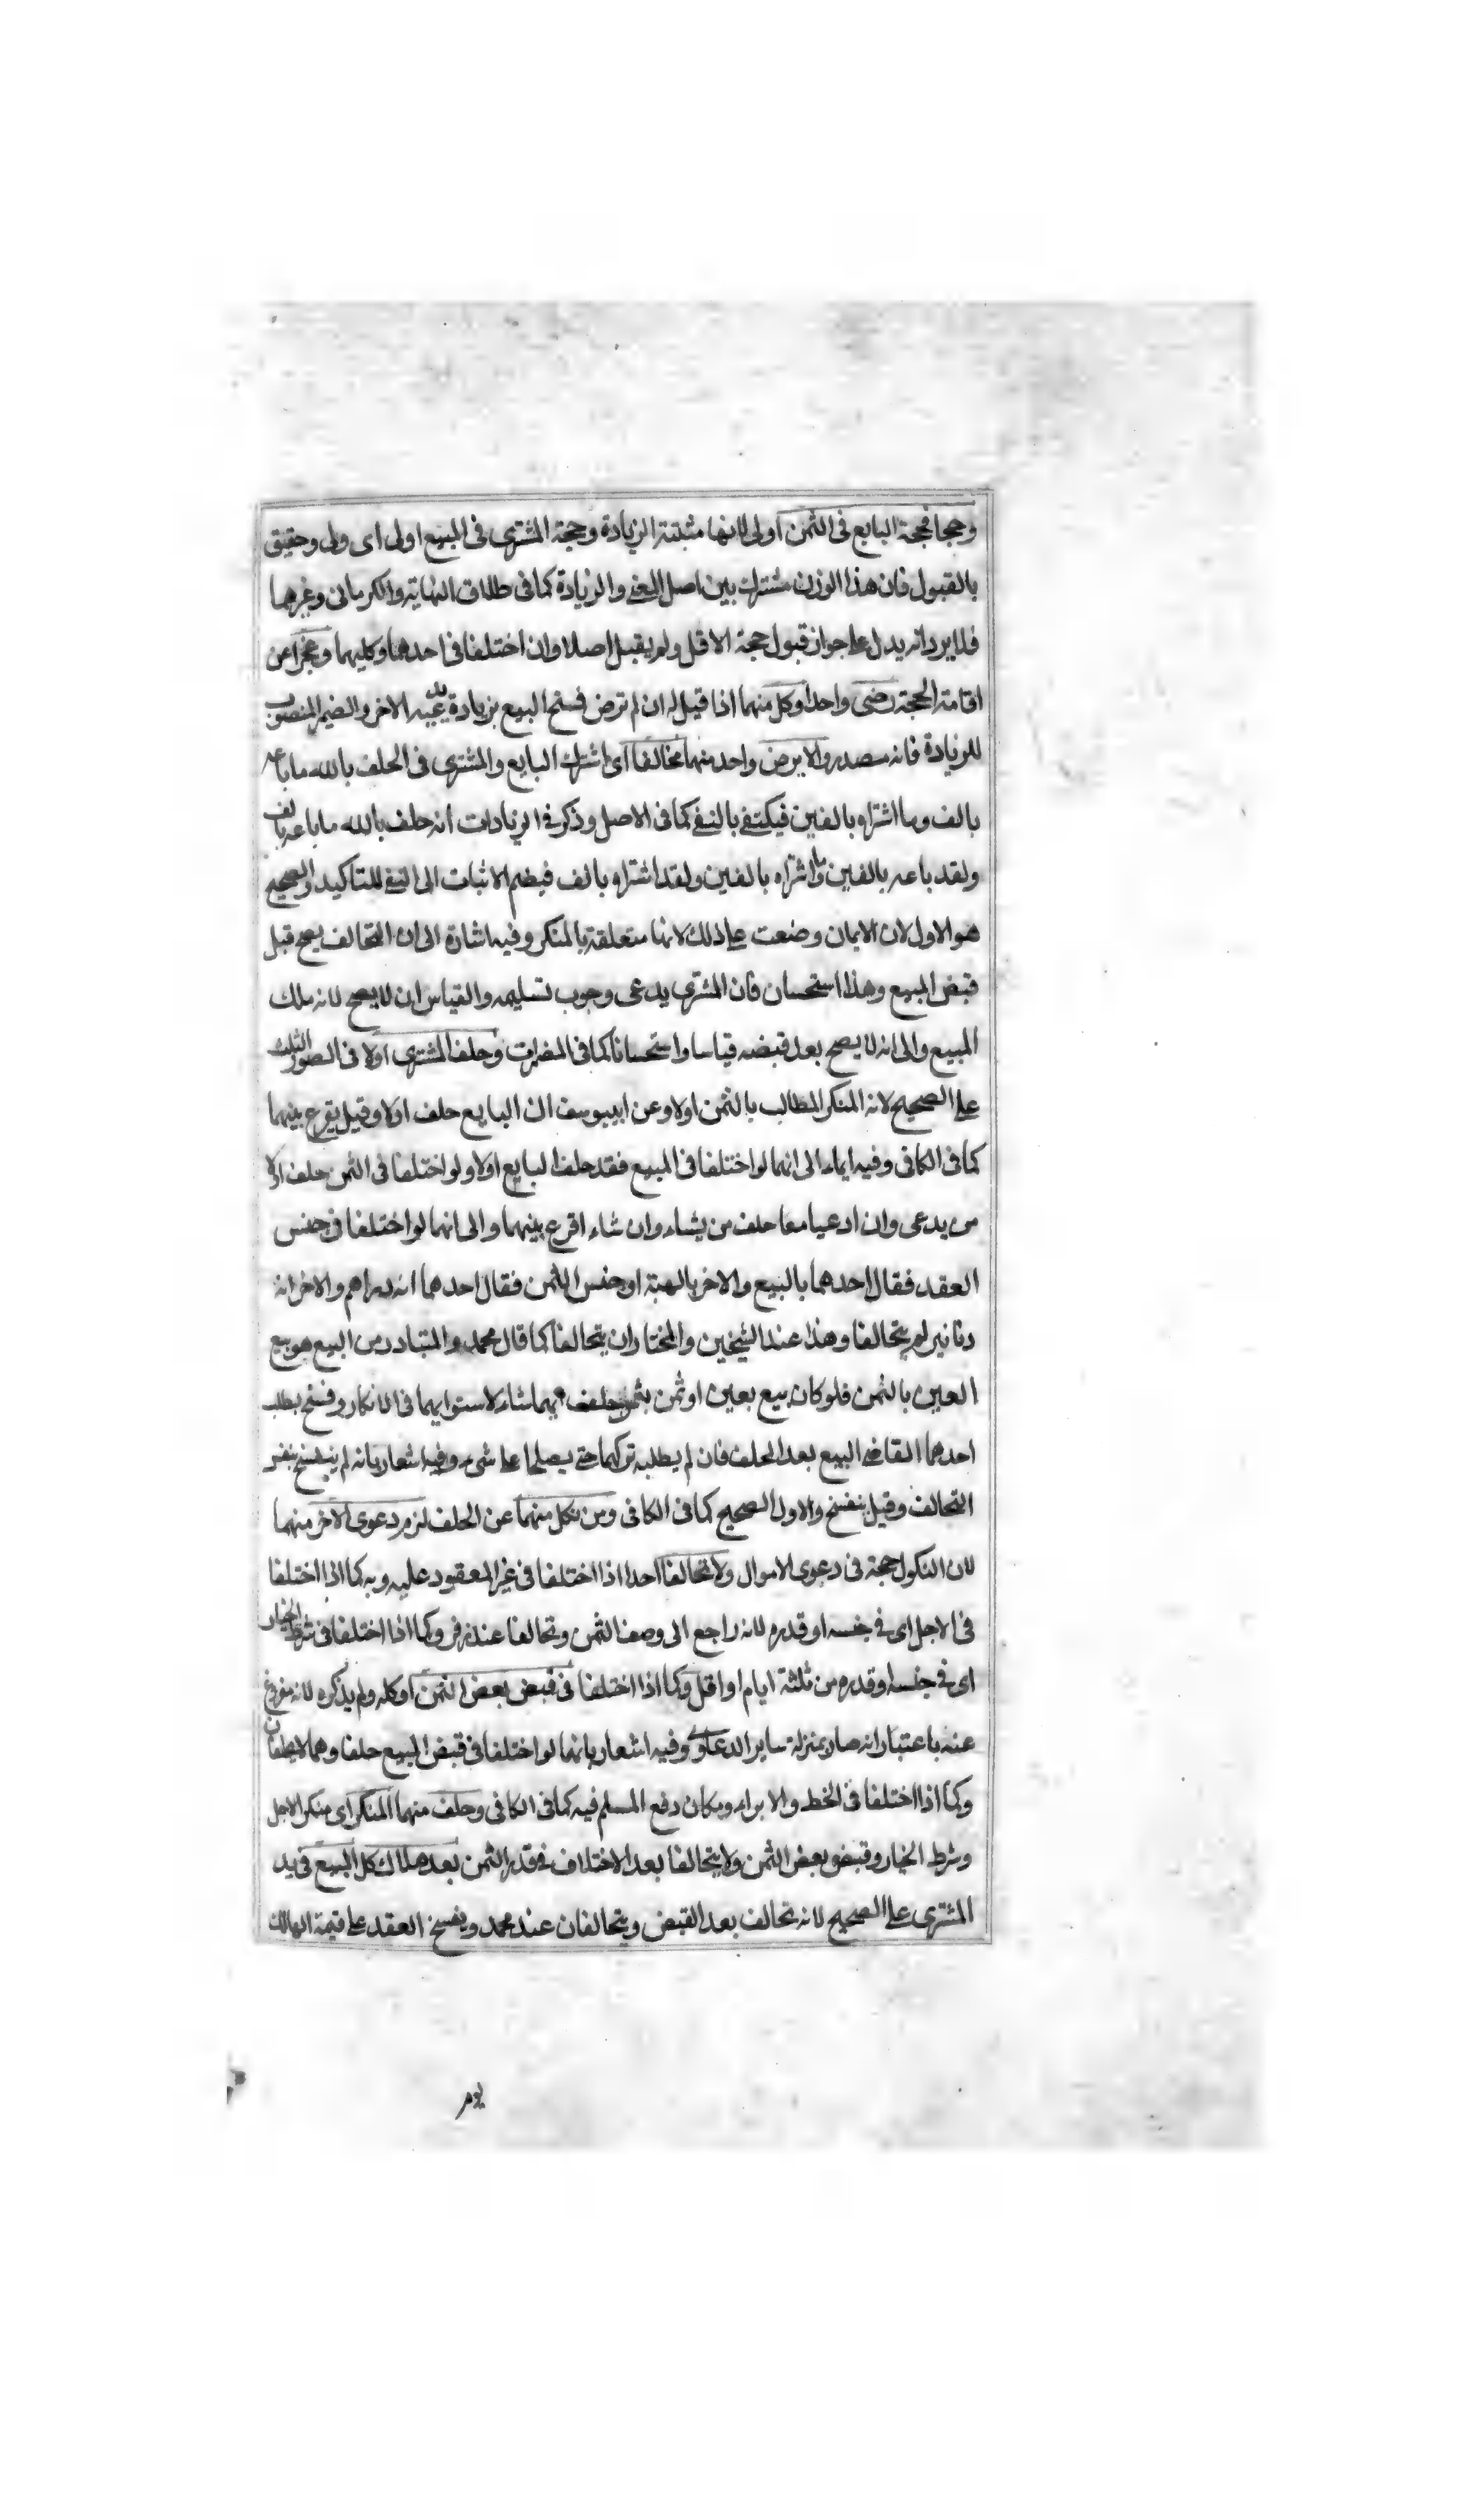 وحججا فحجة البايع فى الثمن اولى لانها مثبتة الزيادة وحجة المشترى فى المبيع اولى اى ولى وحقيق
بالقبول فان هذا الوزن مشترك بين اصل المعنى والزيادة كما فى طلاق النهاية والكرمانى وغيرها
فلا يرد انه يدل على جواز قبول حجة الاقل ولم يقبل اصلا وان اختلفا فى احدهما وكليهما وعجزا عن
اقامة الحجة رضى واحدا وكل منهما اذا قيل له ان لم ترض فسخ البيع بزيادة يدعيه الاخر والضمير المنصوب
للزيادة فانه مصدر والا يرض واحد منهما تحالفا اى اشترك البايع والمشترى فى الحلف بالله ما باعه
بالف وما اشتراه بالفين فيكتفى بالنفى كما فى الاصل وذكر فى الزيادات انه حلف بالله ما باعه بالف
ولقد باعه بالفين وما اشتراه بالفين ولقد اشتراه بالف فيضم الاثبات الى النفى للتاكيد والصحيح
هو الاول لان الايمان وضعت على ذلك لانها متعلقة بالمنكر وفيه اشارة الى ان التحالف يصح قبل
قبض المبيع وهذا استحسان فان المشترى يدعى وجوب تسليمه والقياس ان لا يصح لانه ملك
المبيع والى انه لا يصح بعد قبضه قياسا واستحسانا كما فى المضمرات وحلف المشترى اولا فى الصور الثلث
على الصحيح لانه المنكر المطالب بالثمن اولا وعن ابيوسف ان البايع حلف اولا وقيل يقرع بينهما
كما فى الكافى وفيه ايماء الى انهما لو اختلفا فى المبيع فقد حلف البايع اولا ولو اختلفا فى الثمن حلف اولا
من يدعى وان ادعيا معا حلف من يشاء وان شاء اقرع بينهما والى انهما لو اختلفا فى جنس
العقد فقال احدهما بالبيع والاخر بالهبة او جنس الثمن فقال احدهما انه دراهم والاخر انه
دنانير لم يتحالفا وهذا عند الشيخين والمختار ان يتحالفا كما قال محمد والمتبادر من البيع هو بيع
العين بالثمن فلو كان بيع بعين او ثمن بثمن حلف ايهما شاء لاستوايهما فى الانكار وفسخ بطلب
احدهما القاضى البيع بعد الحلف فان لم يطلبه تركهما حتى يصلحا على شىء وفيه اشعار بانه لم ينفسخ بنفس
التحالف وقيل ينفسخ والاول الصحيح كما فى الكافى ومن نكل منهما عن الحلف لزم دعوى الاخر منهما
لان النكول حجة فى دعوى الاموال ولا تحالفا احدا اذا اختلفا فى غير المعقود عليه وبه كما اذا اختلفا
فى الاجل اى فى جنسه او قدره لانه راجع الى وصف الثمن وتحالفا عند زفر وكما اذا اختلفا فى شرط الخيار
اى فى جنسه او قدره من ثلثة ايام او اقل وكما اذا اختلفا فى قبض بعض الثمن او كله ولم يذكره لانه مفروغ
عنه باعتبار انه صار بمنزلة ساير الدعاوى وفيه اشعار بانهما لو اختلفا فى قبض المبيع حلفا وهما لا يحلفان
وكما اذا اختلفا فى الحط والابراء ومكان دفع المسلم فيه كما فى الكافى وحلف منهما المنكر اى منكر الاجل
وشرط الخيار وقبض بعض الثمن ولا يتحالفا بعد الاختلاف فى قدر الثمن بعد هلاك كل المبيع فى يد
المشترى على الصحيح لانه تحالف بعد القبض ويتحالفان عند محمد ويفسخ العقد على قيمة الهالك